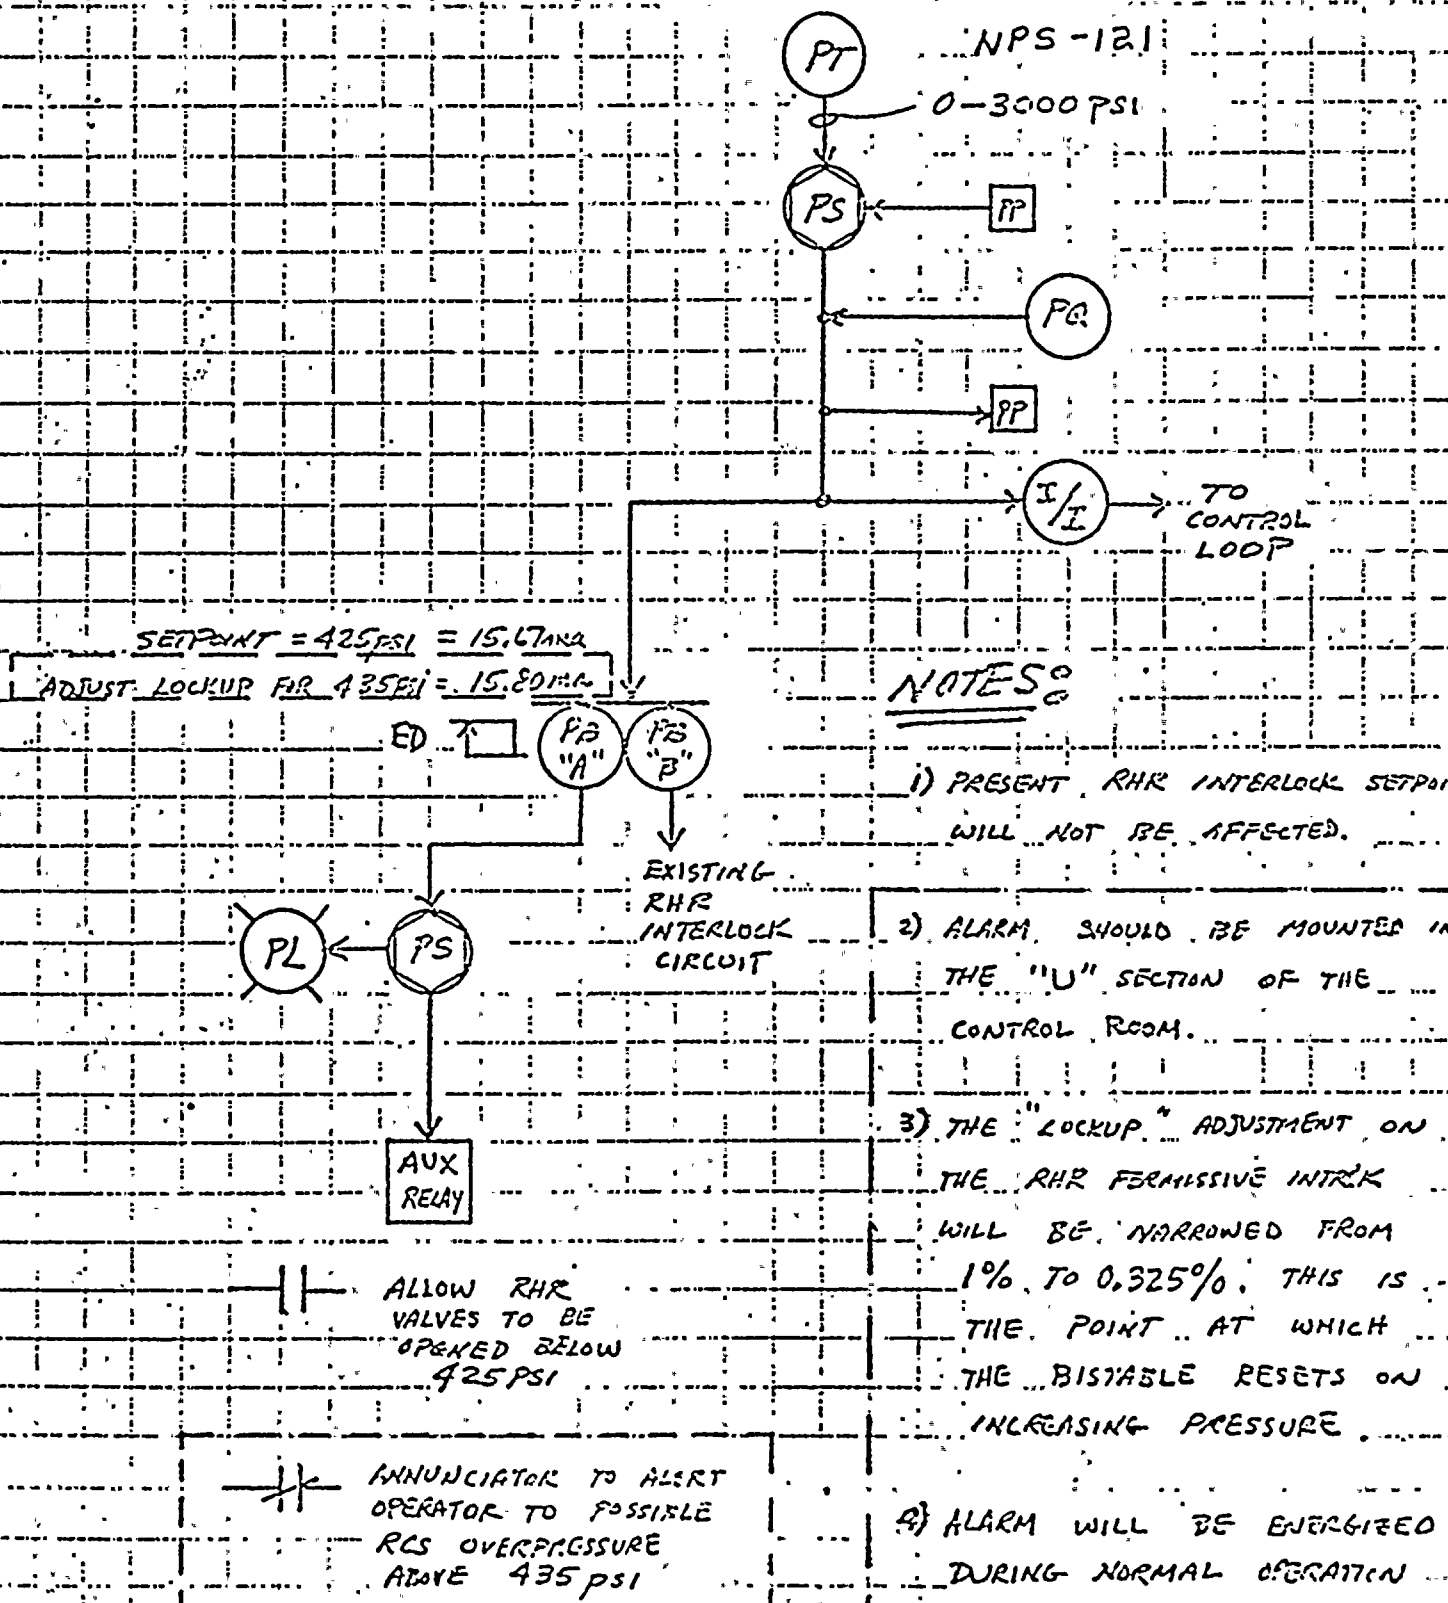 PT
NPS-121
0-3000 PSI
PS
PP
PQ
PP
I/I
TO
CONTROL
LOOP
SETPOINT = 425 PSI = 15.67 MA
ADJUST LOCKUP FOR 435 PSI = 15.80 MA
ED
PB
"A"
PB
"B"
EXISTING
RHR
INTERLOCK
CIRCUIT
PL
PS
AUX
RELAY
ALLOW RHR
VALVES TO BE
OPENED BELOW
425 PSI
ANNUNCIATOR TO ALERT
OPERATOR TO POSSIBLE
RCS OVERPRESSURE
ABOVE 435 PSI
NOTES:
1) PRESENT RHR INTERLOCK SETPOI
WILL NOT BE AFFECTED.
2) ALARM SHOULD BE MOUNTED IN
THE "U" SECTION OF THE
CONTROL ROOM.
3) THE "LOCKUP" ADJUSTMENT ON
THE RHR PERMISSIVE INTR'K
WILL BE NARROWED FROM
1% TO 0.325%. THIS IS
THE POINT AT WHICH
THE BISTABLE RESETS ON
INCREASING PRESSURE.
4) ALARM WILL BE ENERGIZED
DURING NORMAL OPERATION